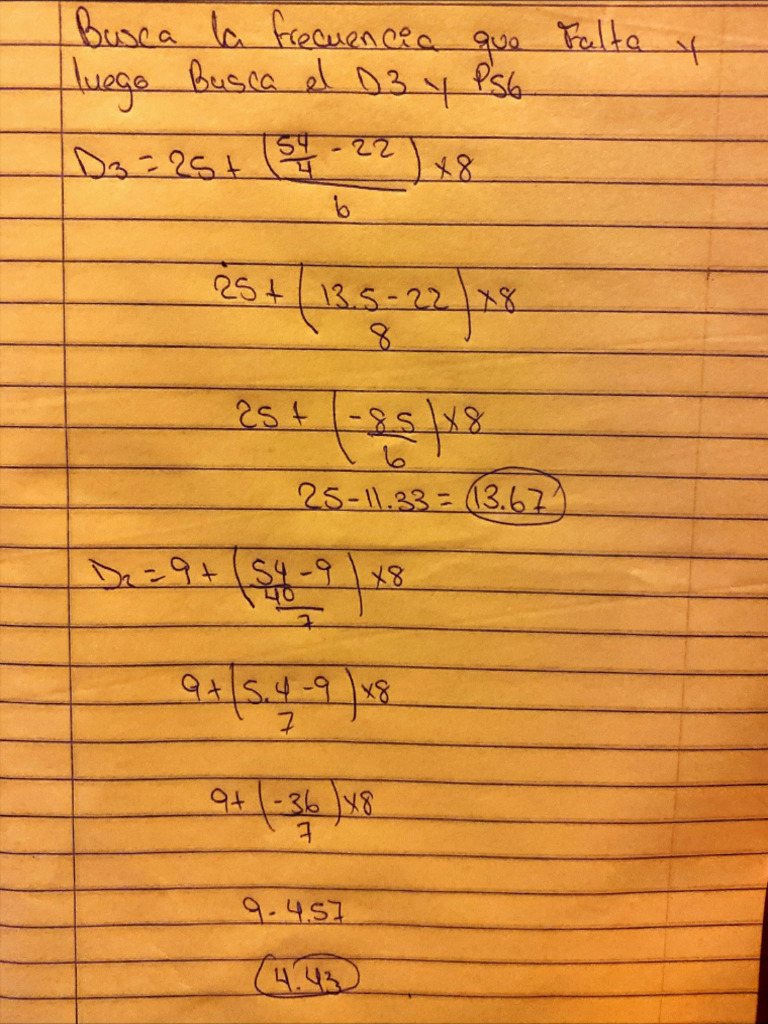 Busca la frecuencia que Falta y
luego Busca el D3 y P56
D3 = 25 + (54/4 - 22 / 6) x8
25 + (13.5 - 22 / 8) x8
25 + (-8.5 / 6) x8
25 - 11.33 = 13.67
D2 = 9 + (54/40 - 9 / 7) x8
9 + (5.4 - 9 / 7) x8
9 + (-36 / 7) x8
9 - 4.57
4.43